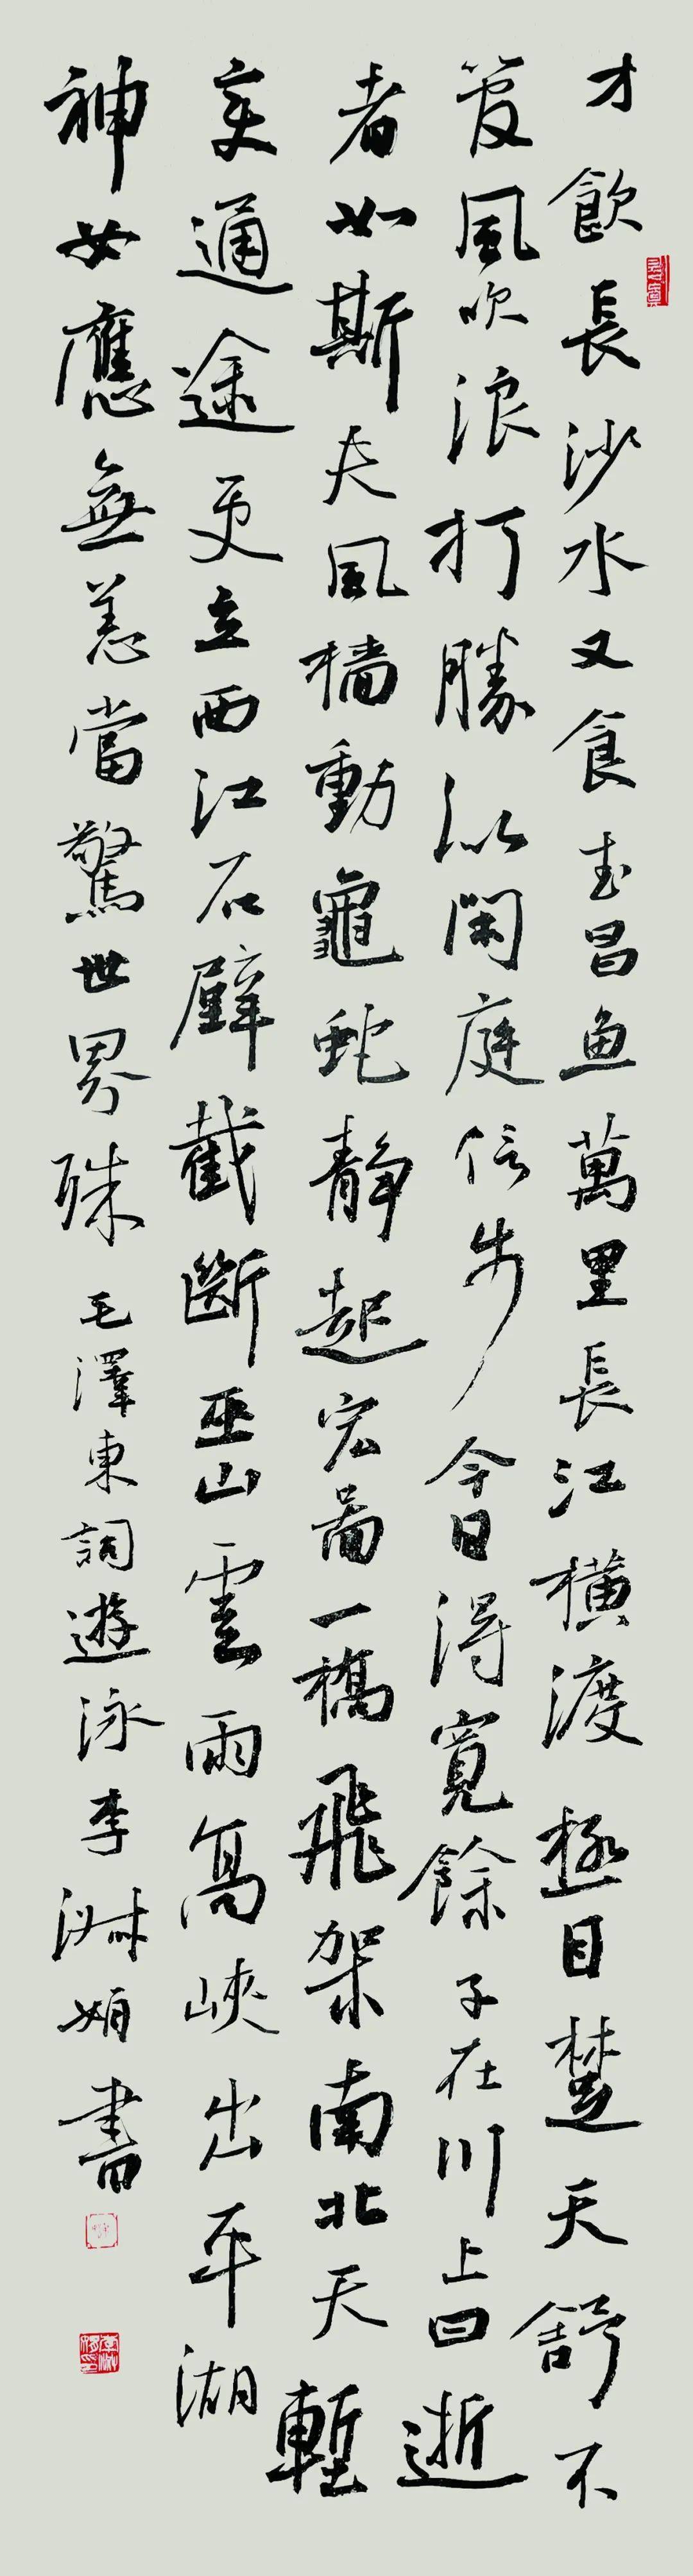 才飲長沙水又食武昌魚萬里長江橫渡極目楚天舒不
管風吹浪打勝似閑庭信步今日得寬餘子在川上曰逝
者如斯夫風檣動龜蛇静起宏圖一橋飛架南北天塹
变通途更立西江石壁截斷巫山雲雨高峽出平湖
神女應無恙當驚世界殊毛澤東詞遊泳李淑娟書